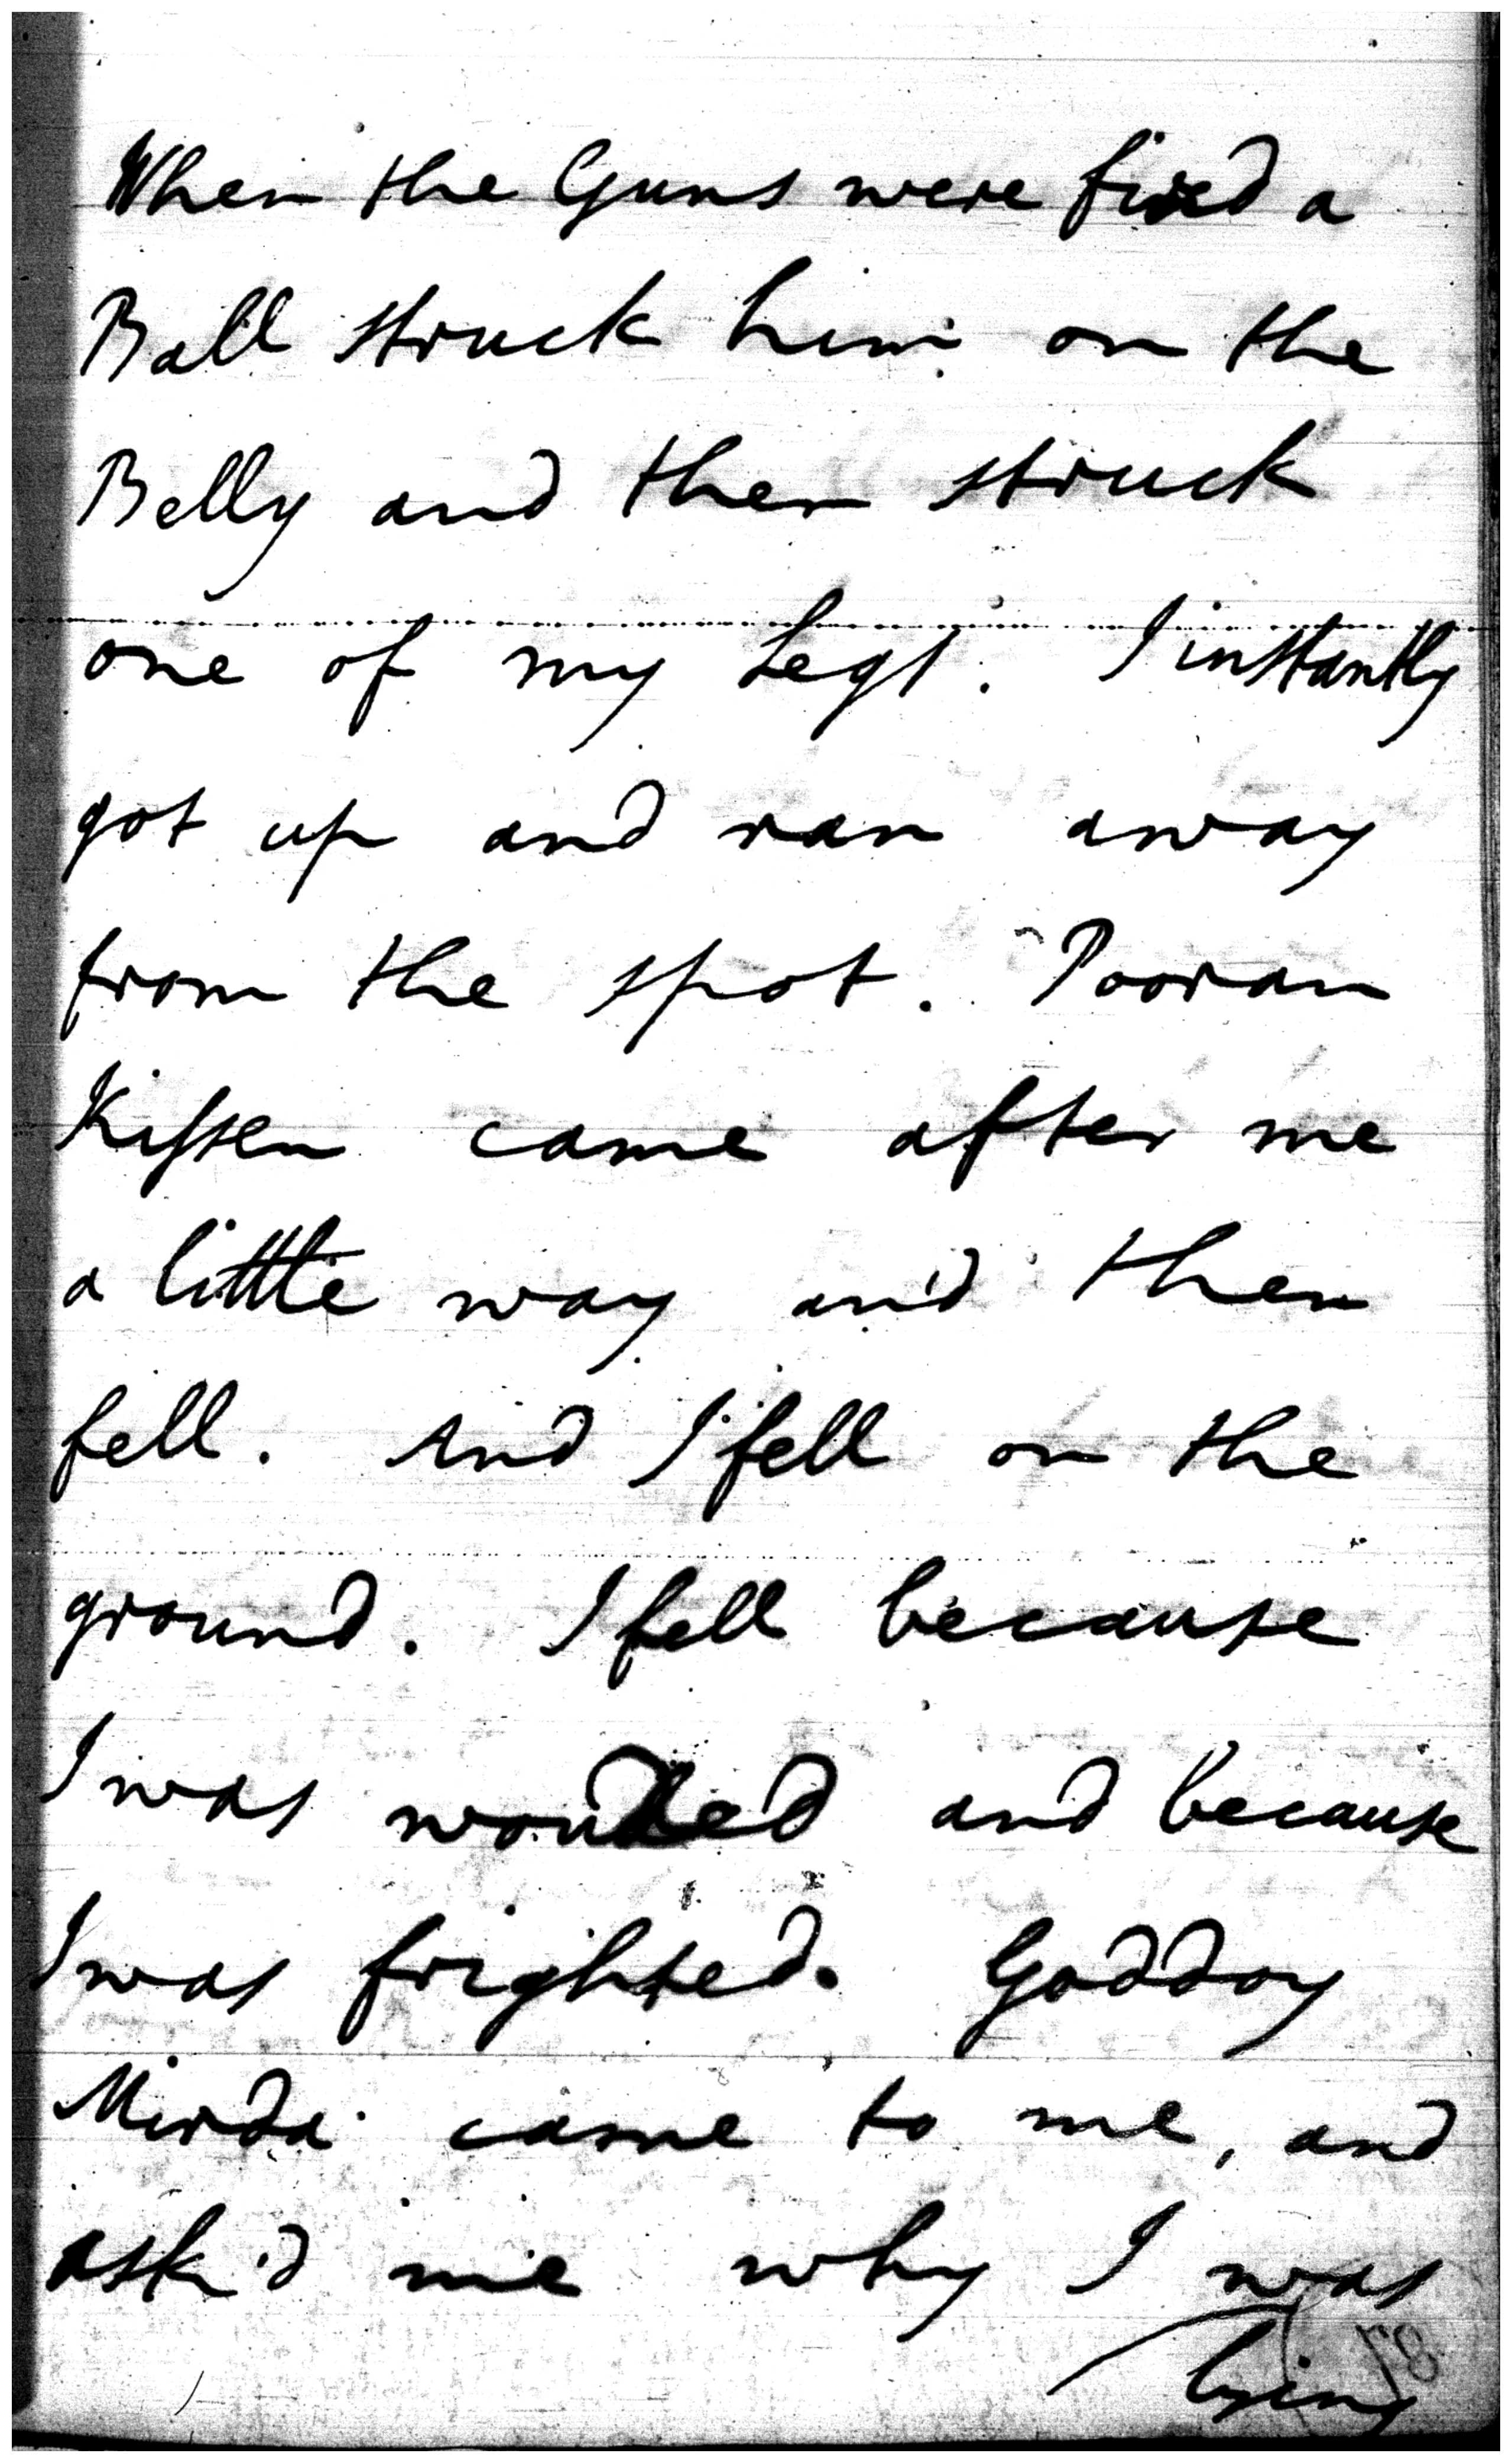 When the Guns were fired a
Ball struck him on the
Belly and then struck
one of my Legs. I instantly
got up and ran away
from the spot. Pooran
Kissen came after me
a little way and then
fell. And I fell on the
ground. I fell because
I was wounded and because
I was frighted. Goddoy
Mirda came to me, and
ask'd me why I was
lying